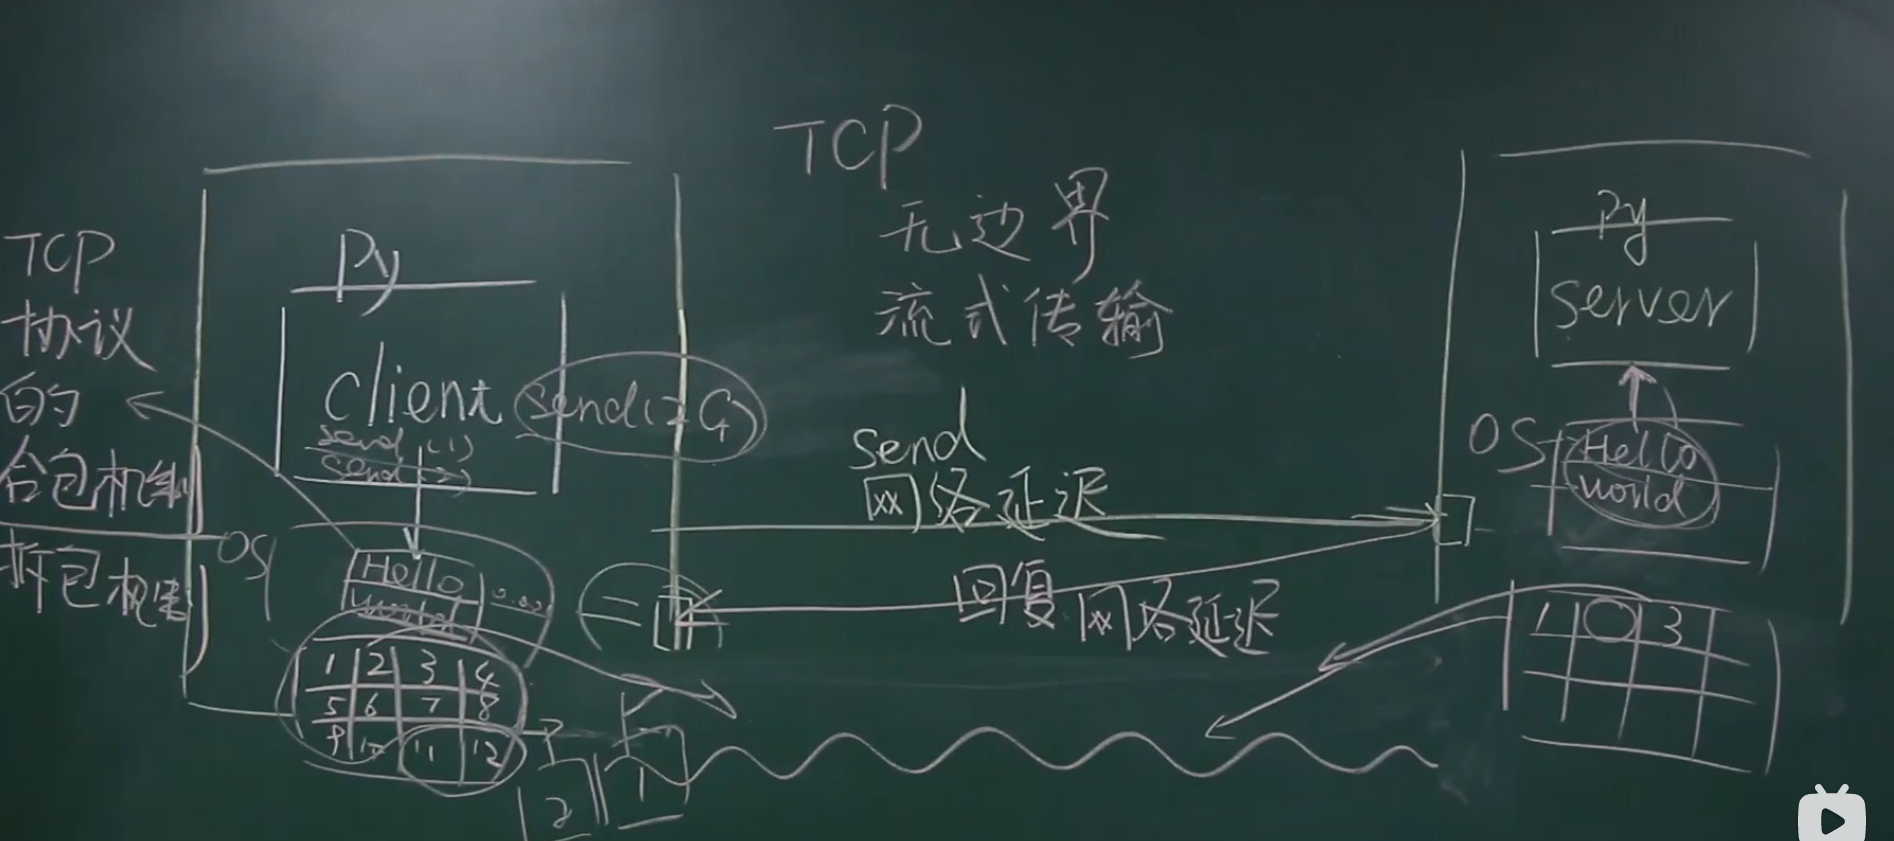 TCP
无边界
流式传输
TCP
协议
的
合包机制
拆包机制
Py
client
send(1)
send(2)
send(2G)
OS
Hello
world
0.001
1 2 3 4
5 6 7 8
9 10 11 12
2
1
send
网络延迟
回复 网络延迟
Py
server
OS
Hello
world
1 3